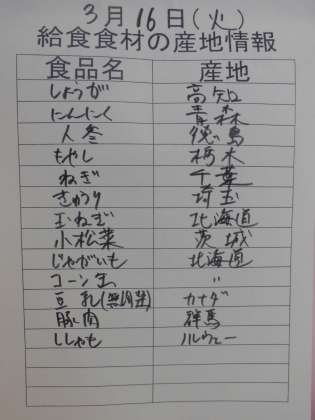 3月16日(火)
給食食材の産地情報
食品名 産地
しょうが 高知
にんにく 青森
人参 徳島
もやし 栃木
ねぎ 千葉
きゅうり 埼玉
玉ねぎ 北海道
小松菜 茨城
じゃがいも 北海道
コーン缶 〃
豆乳(無調整) カナダ
豚肉 群馬
ししゃも ノルウェー